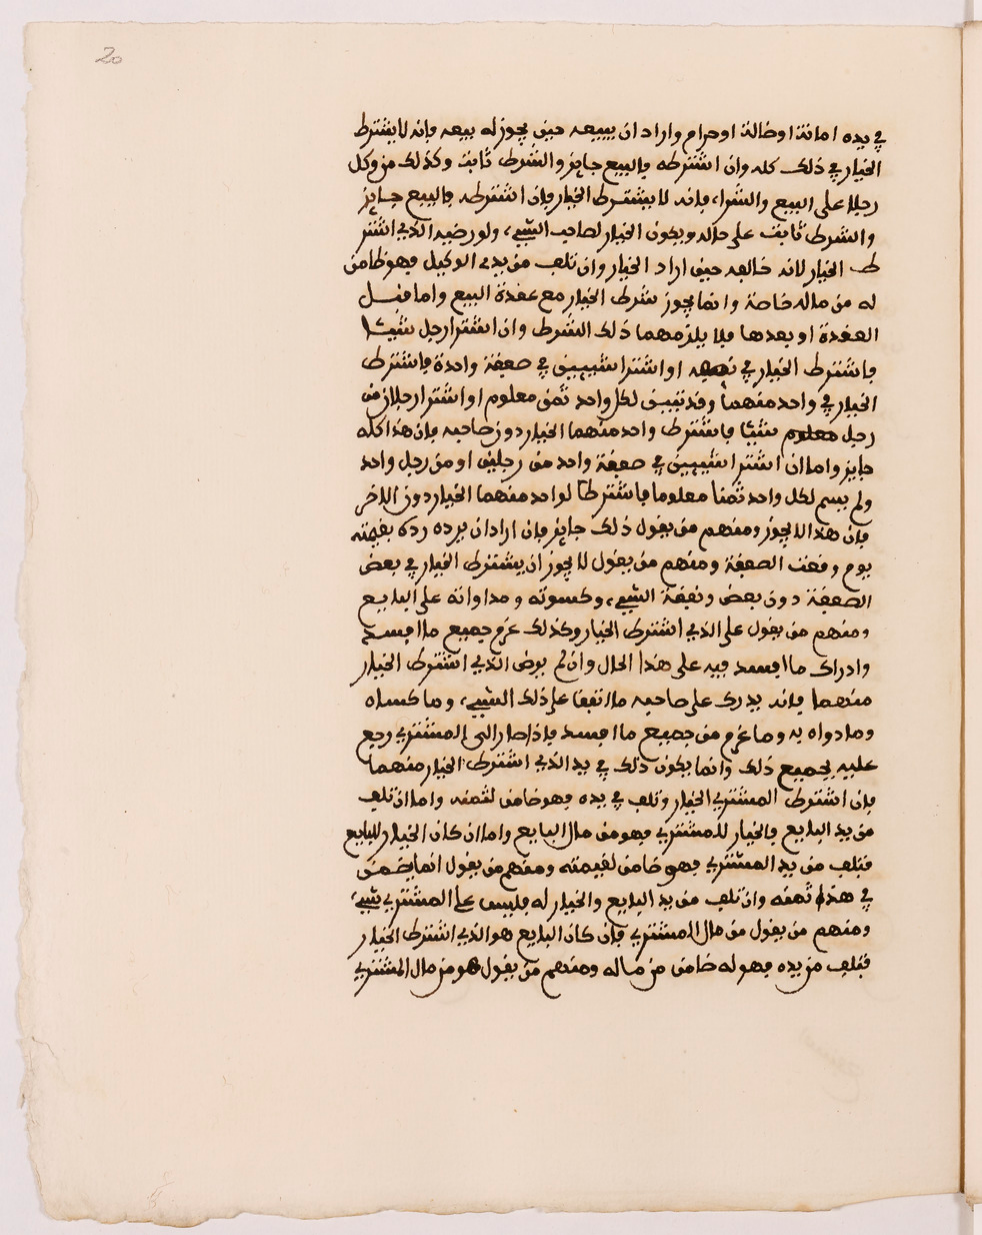 20
في يده امانة او ضالة او حرام واراد ان يبيعه حين يجوز له بيعه فإنه لا يشترط
الخيار في ذلك كله وان اشترطه فالبيع جايز والشرط ثابت وكذلك من وكل
رجلا على البيع والشراء فإنه لا يشترط الخيار فإن اشترطه فالبيع جايز
والشرط ثابت على حاله ويكون الخيار لصاحب الشيء ولو رضيه الذي اشتر
ط الخيار لانه خالفه حين اراد الخيار وان تلف من يدي الوكيل فهو ضامن
له من ماله خاصة وانما يجوز شرط الخيار مع عقدة البيع واما قبل
العقدة او بعدها فلا يلزمهما ذلك الشرط وان اشترا رجل شيئا
فاشترط الخيار في نصفه او اشترا شيئين في صفقة واحدة فاشترط
الخيار في واحد منهما وقد تبين لكل واحد ثمن معلوم او اشترا رجلان من
رجل شيئا فاشترط واحد منهما الخيار دون صاحبه فإن هذا كله
جايز واما ان اشترا شيئين في صفقة واحد من رجلين او من رجل واحد
ولم يسم لكل واحد ثمنا معلوما فاشترطا لواحد منهما الخيار دون الاخر
فإن هذا لا يجوز ومنهم من يقول ذلك جايز فإن اراد ان يرده رده بقيمته
يوم وقعت الصفقة ومنهم من يقول لا يجوز ان يشترط الخيار في بعض
الصفقة دون بعض ونفقة الشيء وكسوته ومداواته على البايع
ومنهم من يقول على الذي اشترط الخيار وكذلك غرم جميع ما افسد
وادراك ما افسد فيه على هذا الحال وان لم يرض الذي اشترط الخيار
منهما فإنه يدرك على صاحبه ما انفقا على ذلك الشيء وما كساه
وما دواه به وما غرم من جميع ما افسد فإذا صار الى المشتري رجع
عليه بجميع ذلك وانما يكون ذلك في يد الذي اشترط الخيار منهما
فإن اشترط المشتري الخيار وتلف في يده فهو ضامن لثمنه واما ان تلف
من يد البايع فالخيار للمشتري فهو من مال البايع واما ان كان الخيار للبايع
فتلف من يد المشتري فهو ضامن لقيمته ومنهم من يقول انما يضمن
في هذا ثمنه وان تلف من يد البايع والخيار له فليس على المشتري شيء
ومنهم من يقول من مال المشتري فإن كان البايع هو الذي اشترط الخيار
فتلف من يده فهو له ضامن من ماله ومنهم من يقول هو من مال المشتري